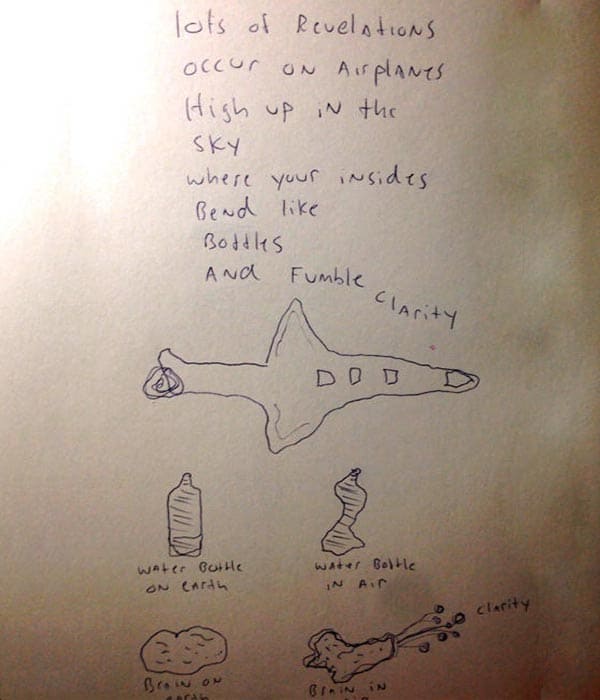 lots of Revelations
occur on Airplanes
High up in the
sky
where your insides
Bend like
Bottles
And Fumble
clarity
water Bottle
on earth
water Bottle
in Air
clarity
Brain on
earth
Brain in